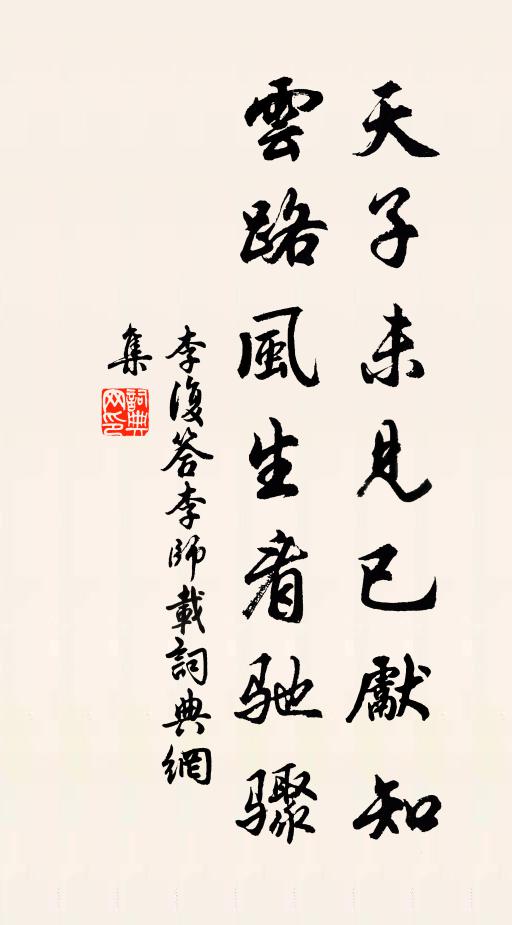 天子未見已獻知
雲路風生看驰骤
李復答李師載詞典網
集
詞典
网印